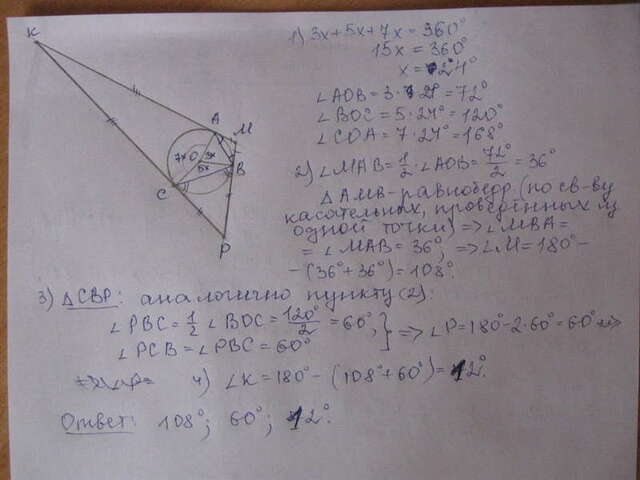 K
A
M
7x O 3x
5x
B
C
P
1) 3x+5x+7x=360°
15x=360°
x=24°
∠AOB=3·24°=72°
∠BOC=5·24°=120°
∠COA=7·24°=168°
2) ∠MAB=1/2·∠AOB=72°/2=36°
△AMB-равнобедр. (по св-ву
касательных, проведённых из
одной точки) => ∠MBA=
=∠MAB=36°, => ∠M=180°-
-(36°+36°)=108°.
3) △CBP: аналогично пункту (2):
∠PBC=1/2 ∠BOC=120°/2=60°, } => ∠P=180°-2·60°=60°
∠PCB=∠PBC=60°
4) ∠K=180°-(108°+60°)=12°.
Ответ: 108°; 60°; 12°.